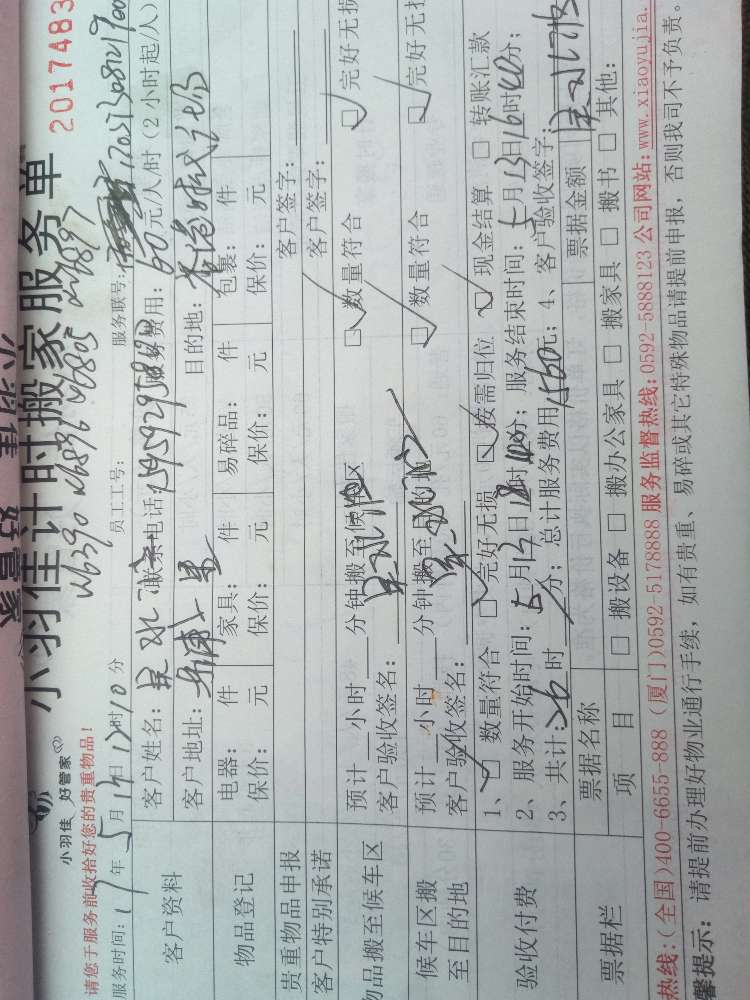 小羽佳 好管家
小羽佳计时搬家服务单
2017483
请您于服务前收拾好您的贵重物品!
服务时间:17年5月13日12时10分 员工工号: 服务联号:
客户资料
客户姓名: 联系电话: 服务费用:60元/人/时(2小时起/人)
客户地址: 目的地:香港时代广场
物品登记
电器: 件 家具: 件 易碎品: 件 包裹: 件
保价: 元 保价: 元 保价: 元 保价: 元
贵重物品申报 客户签字:
客户特别承诺 客户签字:
物品搬至候车区
预计 小时 分钟搬至候车区 □ 数量符合 □ 完好无损
客户验收签名:
候车区搬至目的地
预计 小时 分钟搬至目的地 □ 数量符合 □ 完好无损
客户验收签名:
验收付费
1、□ 数量符合 □ 完好无损 □ 按需归位 □ 现金结算 □ 转账汇款
2、服务开始时间:5月13日 时 分;服务结束时间:5月13日16时 分;
3、共计:26时 分;总计服务费用1560元;4、客户验收签字:
票据栏
票据名称 票据金额
项 目 □ 搬设备 □ 搬办公家具 □ 搬家具 □ 搬书 □ 其他:
热线:(全国)400-6655-888 (厦门)0592-5178888 服务监督热线:0592-5888123 公司网站:www.xiaoyujia.
馨提示: 请提前办理好物业通行手续,如有贵重、易碎或其它特殊物品请提前申报,否则我司不予负责。